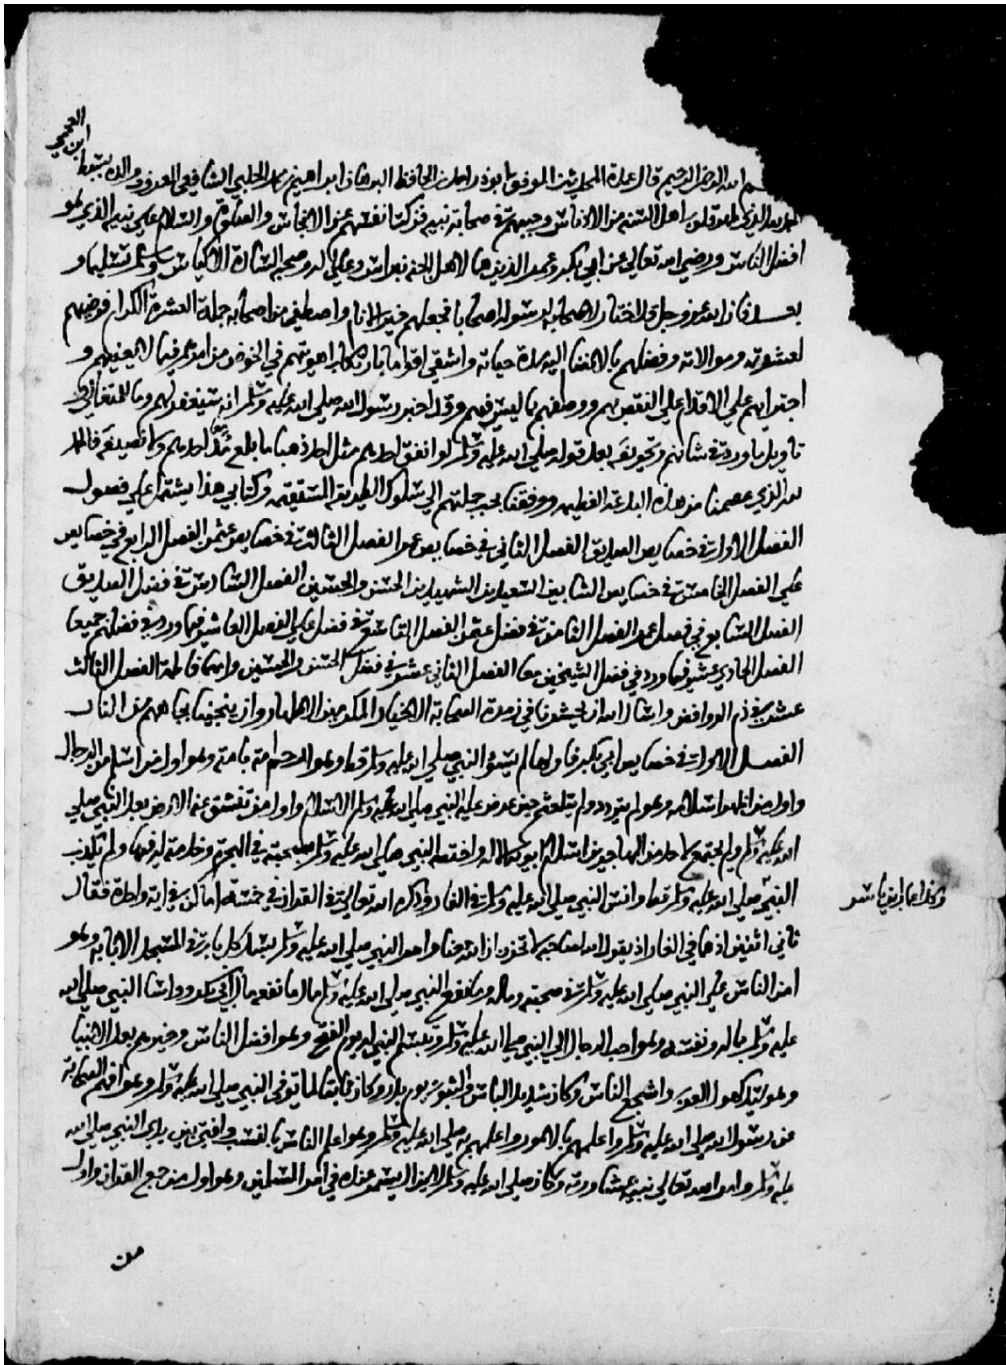 العجمي
ابن
بسم الله الرحمن الرحيم قال عمدة المحدثين الموفق ابوذر احمد بن الحافظ البرهان ابراهيم الحلبي الشافعي المعروف والده بسبط
الحمد لله الذي طهر قلوب اهل السنة من الادناس وحببهم في صحابة نبيه فزكت انفسهم عن الانجاس والصلوة والسلام علي نبيه الذي هو
افضل الناس ورضي الله تعالى عن ابي بكر وعمر الذين هما لاهل الجنة نبراس وعلي اله وصحبه السادة الاكياس وسلم تسليما و
بعد فان الله عز وجل قد اختار لاصحابه لرسوله اصحابا فجعلهم خير الانام واصطفى من اصحابه جملة العشرة الكرام فرضيهم
لعشرته وموالاته وفضلهم بالانضمام اليه مدة حياته واشقى اقواما بارتكاب اهويتهم في الخوض من امرهم فيما لا يعنيهم و
اجترايهم علي الاقدام علي النقص بهم ووصفهم بما ليس فيهم وقد اخبر رسول الله صلى الله عليه وسلم انه سيغفر لهم وما للمتغالي في
تاويل ما ورد في شانهم وتحريفه بعد قوله صلى الله عليه وسلم لو انفق احدهم مثل احد ذهبا ما بلغ مد احدهم ولا نصيفه فالحمد
لله الذي عصمنا من هذه البدعة الفظيعه ووفقنا بحب جملتهم الي سلوك الطريقة المستقيمه وكتابي هذا يشتمل علي فصول
الفصل الاول في خصايص الصديق الفصل الثاني في خصايص عمر الفصل الثالث في خصايص عثمن الفصل الرابع في خصايص
علي الفصل الخامس في خصايص السابين السعيدين الشهيدين الحسن والحسين الفصل السادس في فضل الصديق
الفصل السابع في فضل عمر الفصل الثامن في فضل عثمن الفصل التاسع في فضل علي الفصل العاشر فيما ورد في فضلهم جميعا
الفصل الحادي عشر فيما ورد في فضل الشيخين معا الفصل الثاني عشر في فضل الحسن والحسين وامهما فاطمة الفصل الثالث
عشر في ذم الروافض واسال الله ان يحشرنا في زمرة الصحابة الاخيار المكرمين الاطهار وان ينجينا بجاههم من النار
الفصل الاول في خصايص ابي بكر فاولها لم يسؤ النبي صلى الله عليه وسلم قط وهو ارحم امته بامته وهو اول من اسلم من الرجال
واول من اظهر اسلامه وهو لم يتردد ولم يتلعثم حين عرض عليه النبي صلى الله عليه وسلم الاسلام واول من تنشق عنه الارض بعد النبي صلى
الله عليه وسلم ولم يجتمع لاحد من المهاجرين اسلام ابويه الا له واختصه النبي صلى الله عليه وسلم بصحبته في الهجرة وخدمته له فيها ولم يكذب
النبي صلى الله عليه وسلم قط وانس النبي صلى الله عليه وسلم في الغار وذكره الله تعالى في القران في خمسة اماكن في اية واحدة فقال
ثاني اثنين اذ هما في الغار اذ يقول لصاحبه لا تحزن ان الله معنا وامر النبي صلى الله عليه وسلم بسد كل باب في المسجد الا بابه وهو
امن الناس علي النبي صلى الله عليه وسلم في صحبته وماله وما نفع النبي صلى الله عليه وسلم مال ما نفعه مال ابي بكر وواسا النبي صلى الله
عليه وسلم بماله ونفسه وهو احب الرجال الي النبي صلى الله عليه وسلم وتبسم النبي له يوم الفتح وهو افضل الناس وخيرهم بعد الانبيا
واشجع الناس وكان شديد الباس والثبوت يوم بدر وكان ثابتا لما توفي النبي صلى الله عليه وسلم وهو افهم الصحابة
عن رسول الله صلى الله عليه وسلم واعلمهم بالامور واعلمهم به صلى الله عليه وسلم وهو اعلم الناس بالنسب وافتى بين يدي النبي صلى الله
عليه وسلم وامر الله تعالى نبيه بمشاورته وكان صلى الله عليه وسلم لا يزال يسمر عنده في امر المسلمين وهو اول من جمع القران واول
من